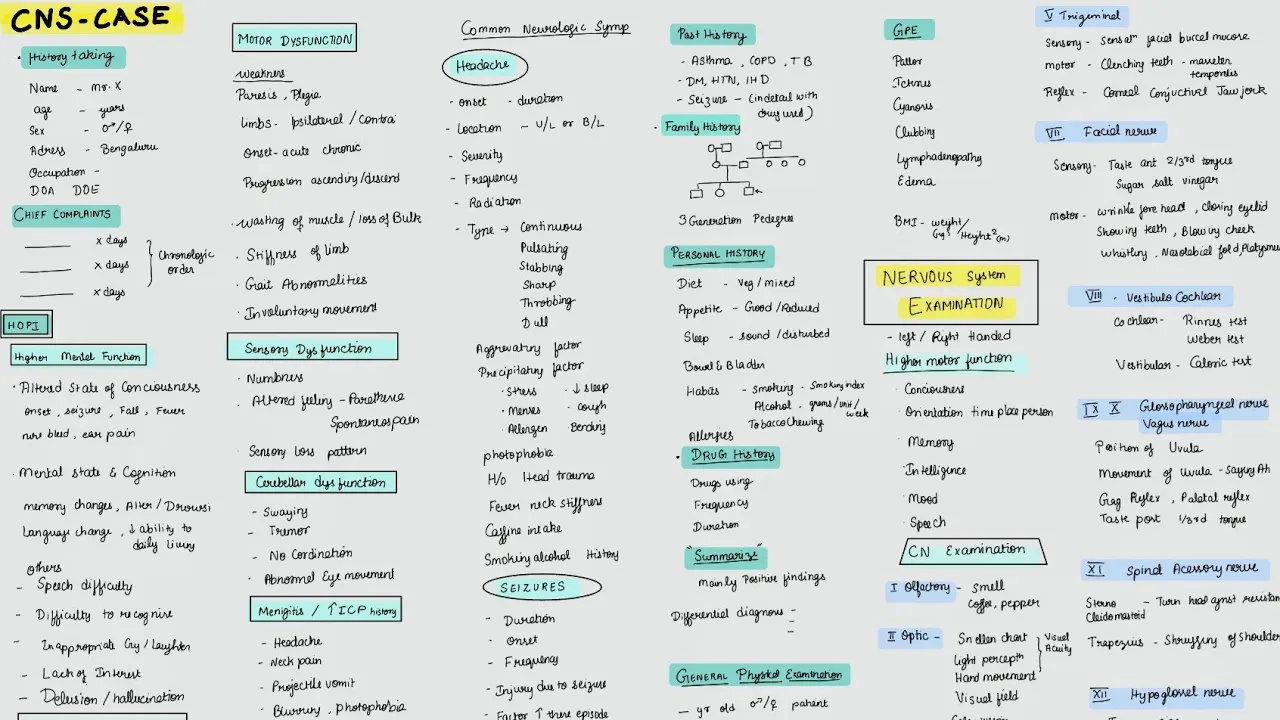 CNS-CASE
History taking
Name - Mr. X
age - years
Sex - ♂/♀
Adress - Bengaluru
Occupation -
DOA DOE
CHIEF COMPLAINTS
x days
x days
x days
Chronologic
order
HOPI
Higher Mental Function
Altered State of Conciousness
onset, seizure, Fall, Fever
nose bleed, ear pain
Mental state & Cognition
memory changes, Alter/Drowsi
Language change, ↓ ability to
daily living
others
- Speech difficulty
- Difficulty to recognise
- Inappropriate Cry/Laughter
- Lack of Interest
- Delusion/hallucination
MOTOR DYSFUNCTION
Weakness
Paresis, Plegia
limbs- Ipsilateral/contra
Onset-acute chronic
Progression ascending/descend
wasting of muscle/loss of Bulk
Stiffness of limb
Gait Abnormalities
Involuntary movement
Sensory Dysfunction
Numbness
Altered feeling - Paresthesia
Spontaneous pain
Sensory Loss pattern
Cerebellar dysfunction
- Swaying
- Tremor
- No Cordination
- Abnormal Eye movement
Menigitis / ↑ICP history
- Headache
- Neck pain
- Projectile vomit
- Blurring, photophobia
Common Neurologic Symp
Headache
- onset - duration
- Location - U/L or B/L
- Severity
- Frequency
- Radiation
- Type → Continuous
Pulsating
Stabbing
Sharp
Throbbing
Dull
Aggrevating factor
Precipitating factor
Stress ↓sleep
Menses cough
Allergen Bending
photophobia
H/o Head trauma
Fever neck stiffness
Caffine intake
Smoking alcohol History
SEIZURES
- Duration
- Onset
- Frequency
- Injury due to seizure
- Factor ↑ these episode
Past History
- Asthma, COPD, TB
- DM, HTN, IHD
- Seizure - (in detail with
drug used)
Family History
3 Generation Pedegree
PERSONAL HISTORY
Diet - Veg/mixed
Appetite - Good/Reduced
Sleep - sound/disturbed
Bowel & Bladder
Habits - Smoking - Smoking index
Alcohol - grams/unit/
week
Tobacco Chewing
Allergies
DRUG HISTORY
Drugs using
Frequency
Duration
"Summarize"
mainly Positive findings
Differential diagnosis -
-
-
GENERAL Physical Examination
- yr old ♂/♀ patient
GPE
Pallor
Icterus
Cyanosis
Clubbing
Lymphadenopathy
Edema
BMI - weight/
(kg) /Height²(m)
NERVOUS System
EXAMINATION
- left / Right Handed
Higher motor function
Conciousness
Orientation time place person
Memory
Intelligence
Mood
Speech
CN Examination
I Olfactory - Smell
Coffee, pepper
II Optic - Snellen chart
Light percepth
Hand movement
Visual
Acuity
Visual field
V Trigeminal
Sensory - sensatⁿ facial buccal mucosa
motor - Clenching teeth - masseter
temporales
Reflex - Corneal Conjuctival Jaw jerk
VII Facial nerve
Sensory- Taste ant 2/3rd tongue
Sugar salt vinegar
motor- wrinkle fore head, closing eyelid
Showing teeth, Blowing cheek
whistling, Nasolabial fold, Platysmus
VIII . Vestibulo Cochlear
Cochlear- Rinnes test
Weber test
Vestibular - Caloric test
IX X Glossopharyngeal nerve
Vagus nerve
Position of Uvula
Movement of Uvula - Saying Ah
Gag Reflex, Palatal reflex
Taste post 1/3rd tongue
XI Spinal Acessory nerve
Sterno
Cleidomastoid - Turn head against resistan
Trapezius - Shrugging of shoulder
XII Hypoglossal nerve